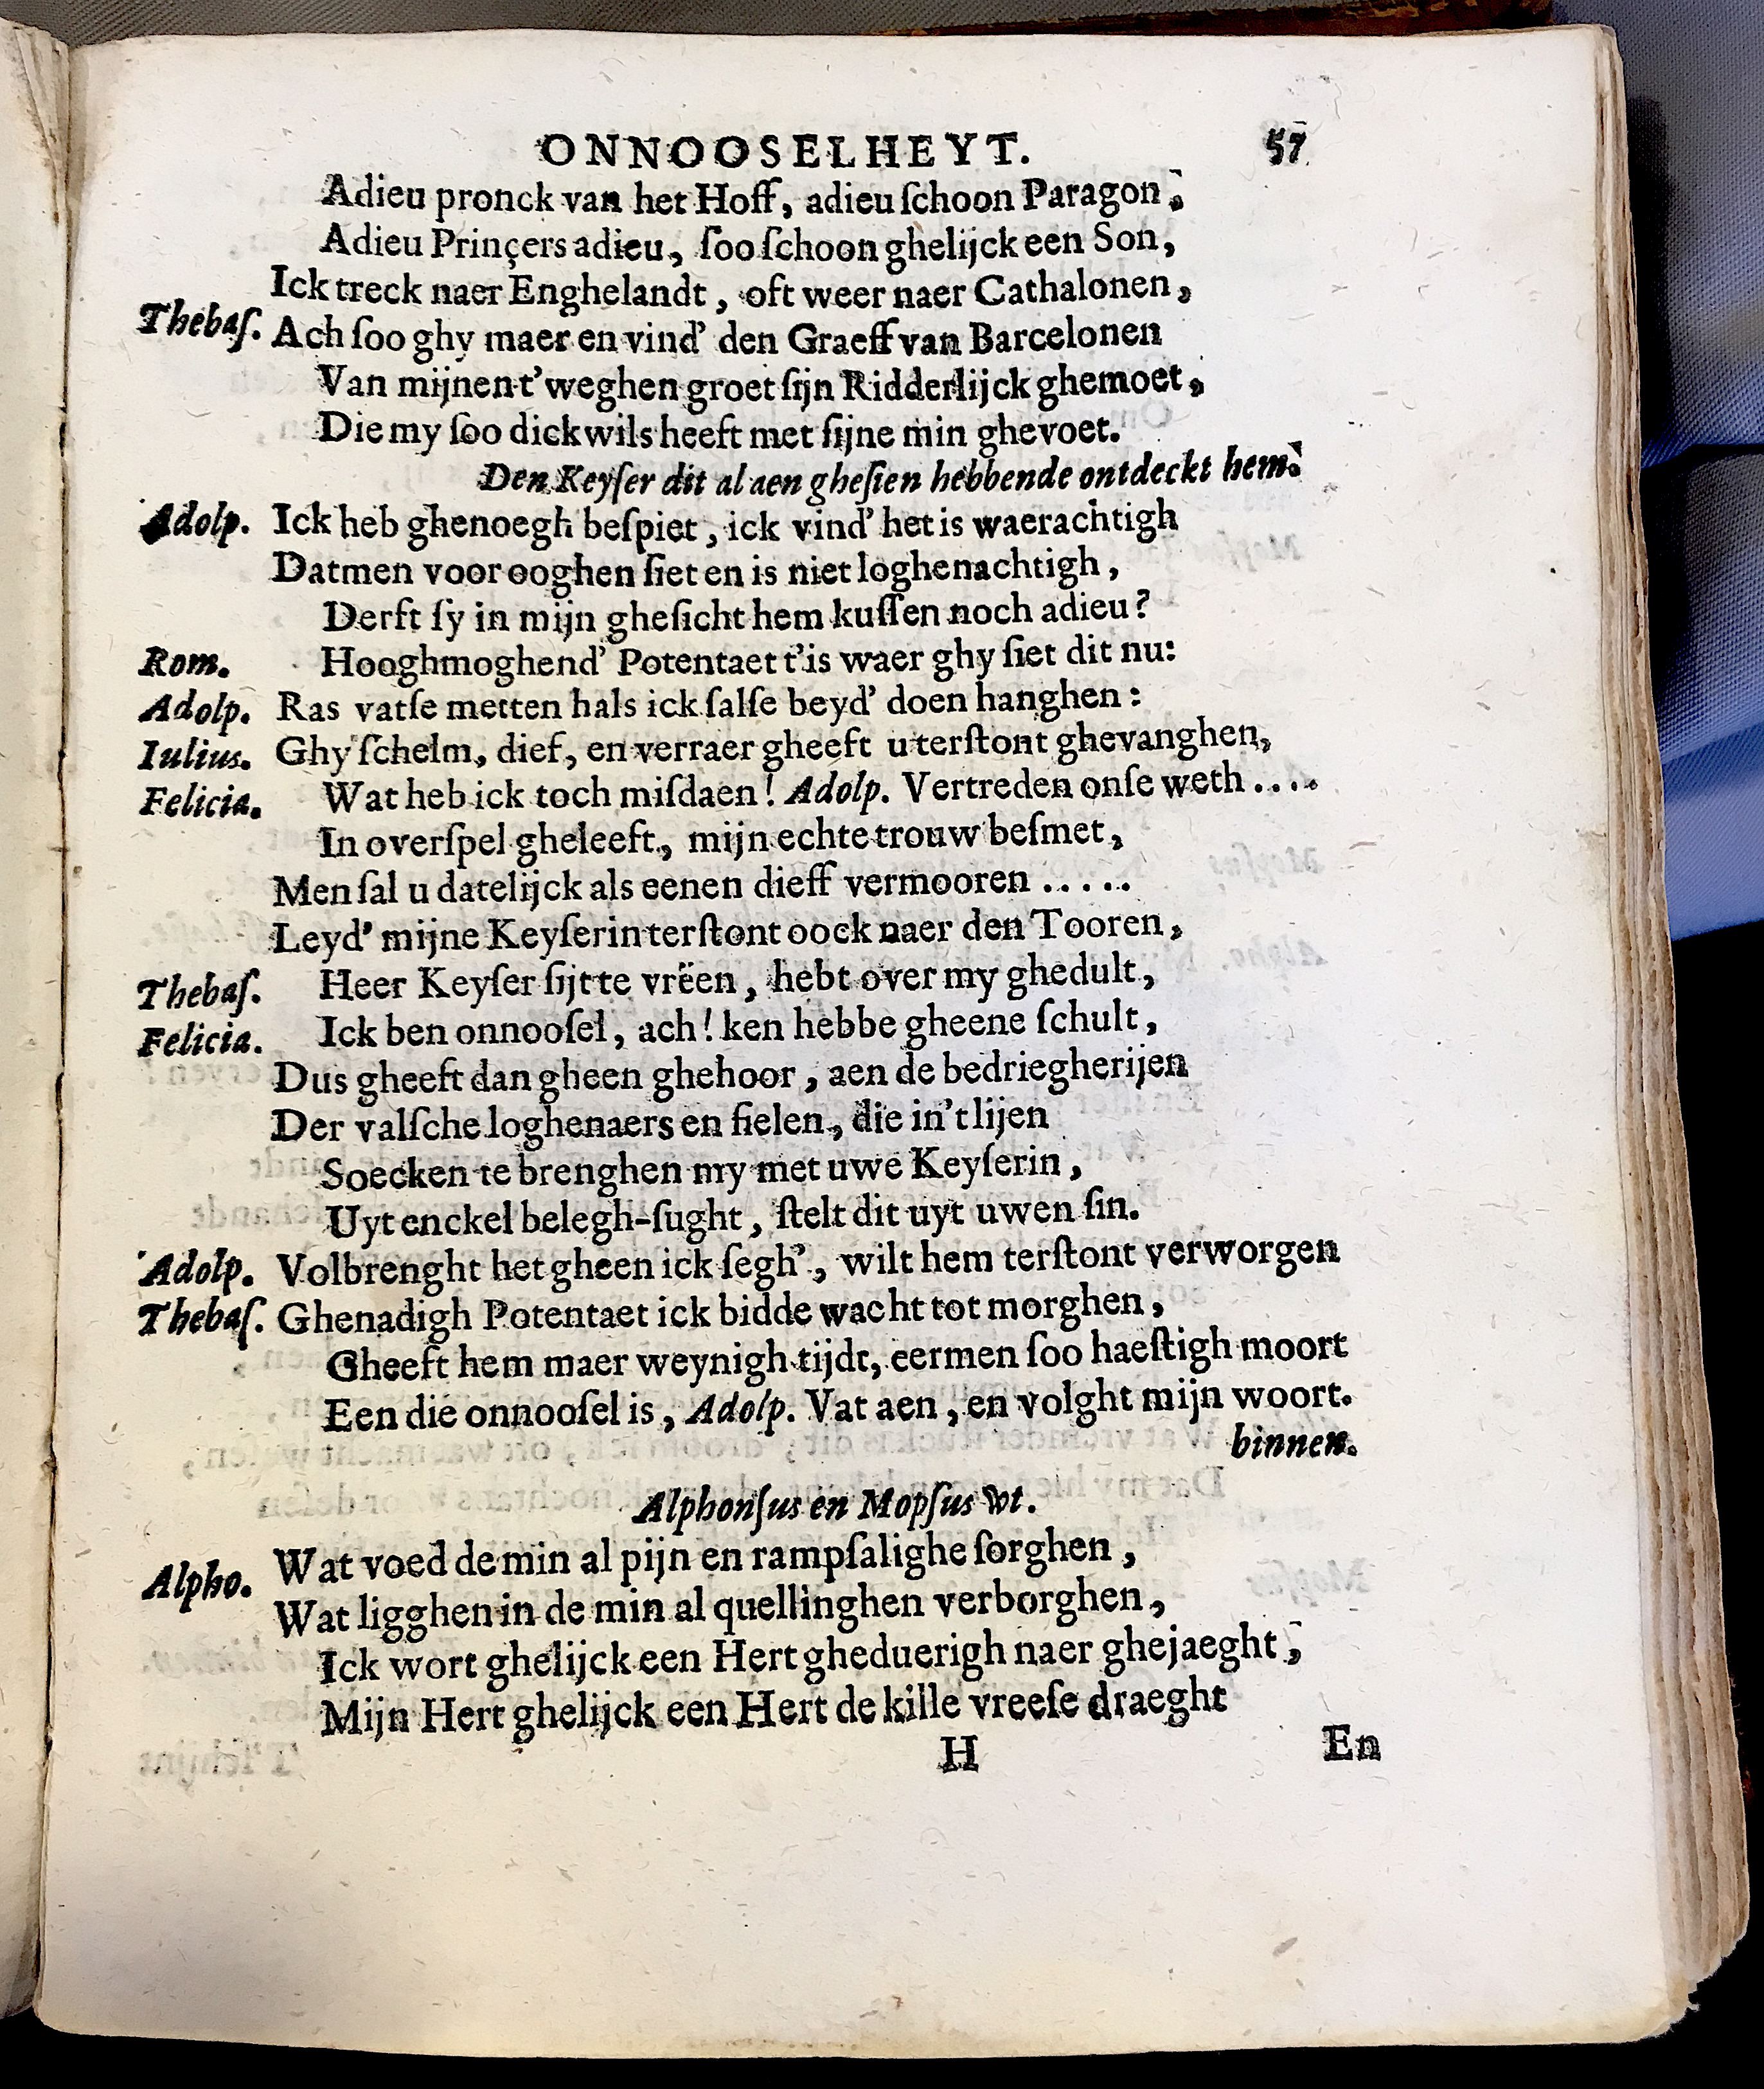 ONNOOSELHEYT. 57
Adieu pronck van het Hoff, adieu ſchoon Paragon,
Adieu Prinçers adieu, ſoo ſchoon ghelijck een Son,
Ick treck naer Enghelandt, oft weer naer Cathalonen,
Thebaſ. Ach ſoo ghy maer en vind' den Graeff van Barcelonen
Van mijnen t'weghen groet ſijn Ridderlijck ghemoet,
Die my ſoo dickwils heeft met ſijne min ghevoet.
Den Keyſer dit al aen gheſien hebbende ontdeckt hem.
Adolp. Ick heb ghenoegh beſpiet, ick vind' het is waerachtigh
Datmen voor ooghen ſiet en is niet loghenachtigh,
Derft ſy in mijn gheſicht hem kuſſen noch adieu?
Rom. Hooghmoghend' Potentaet t'is waer ghy ſiet dit nu:
Adolp. Ras vatſe metten hals ick ſalſe beyd' doen hanghen:
Iulius. Ghy ſchelm, dief, en verraer gheeft u terſtont ghevanghen,
Felicia. Wat heb ick toch miſdaen! Adolp. Vertreden onſe weth....
In overſpel gheleeft, mijn echte trouw beſmet,
Men ſal u datelijck als eenen dieff vermooren.....
Leyd' mijne Keyſerin terſtont oock naer den Tooren,
Thebaſ. Heer Keyſer ſijt te vrëen, hebt over my ghedult,
Felicia. Ick ben onnooſel, ach! ken hebbe gheene ſchult,
Dus gheeft dan gheen ghehoor, aen de bedriegherijen
Der valſche loghenaers en fielen, die in't lijen
Soecken te brenghen my met uwe Keyſerin,
Uyt enckel belegh-ſught, ſtelt dit uyt uwen ſin.
Adolp. Volbrenght het gheen ick ſegh', wilt hem terſtont verworgen
Thebaſ. Ghenadigh Potentaet ick bidde wacht tot morghen,
Gheeft hem maer weynigh tijdt, eermen ſoo haeſtigh moort
Een die onnooſel is, Adolp. Vat aen, en volght mijn woort.
binnen.
Alphonſus en Mopſus wt.
Alpho. Wat voed de min al pijn en rampſalighe ſorghen,
Wat ligghen in de min al quellinghen verborghen,
Ick wort ghelijck een Hert gheduerigh naer ghejaeght,
Mijn Hert ghelijck een Hert de kille vreeſe draeght
H En